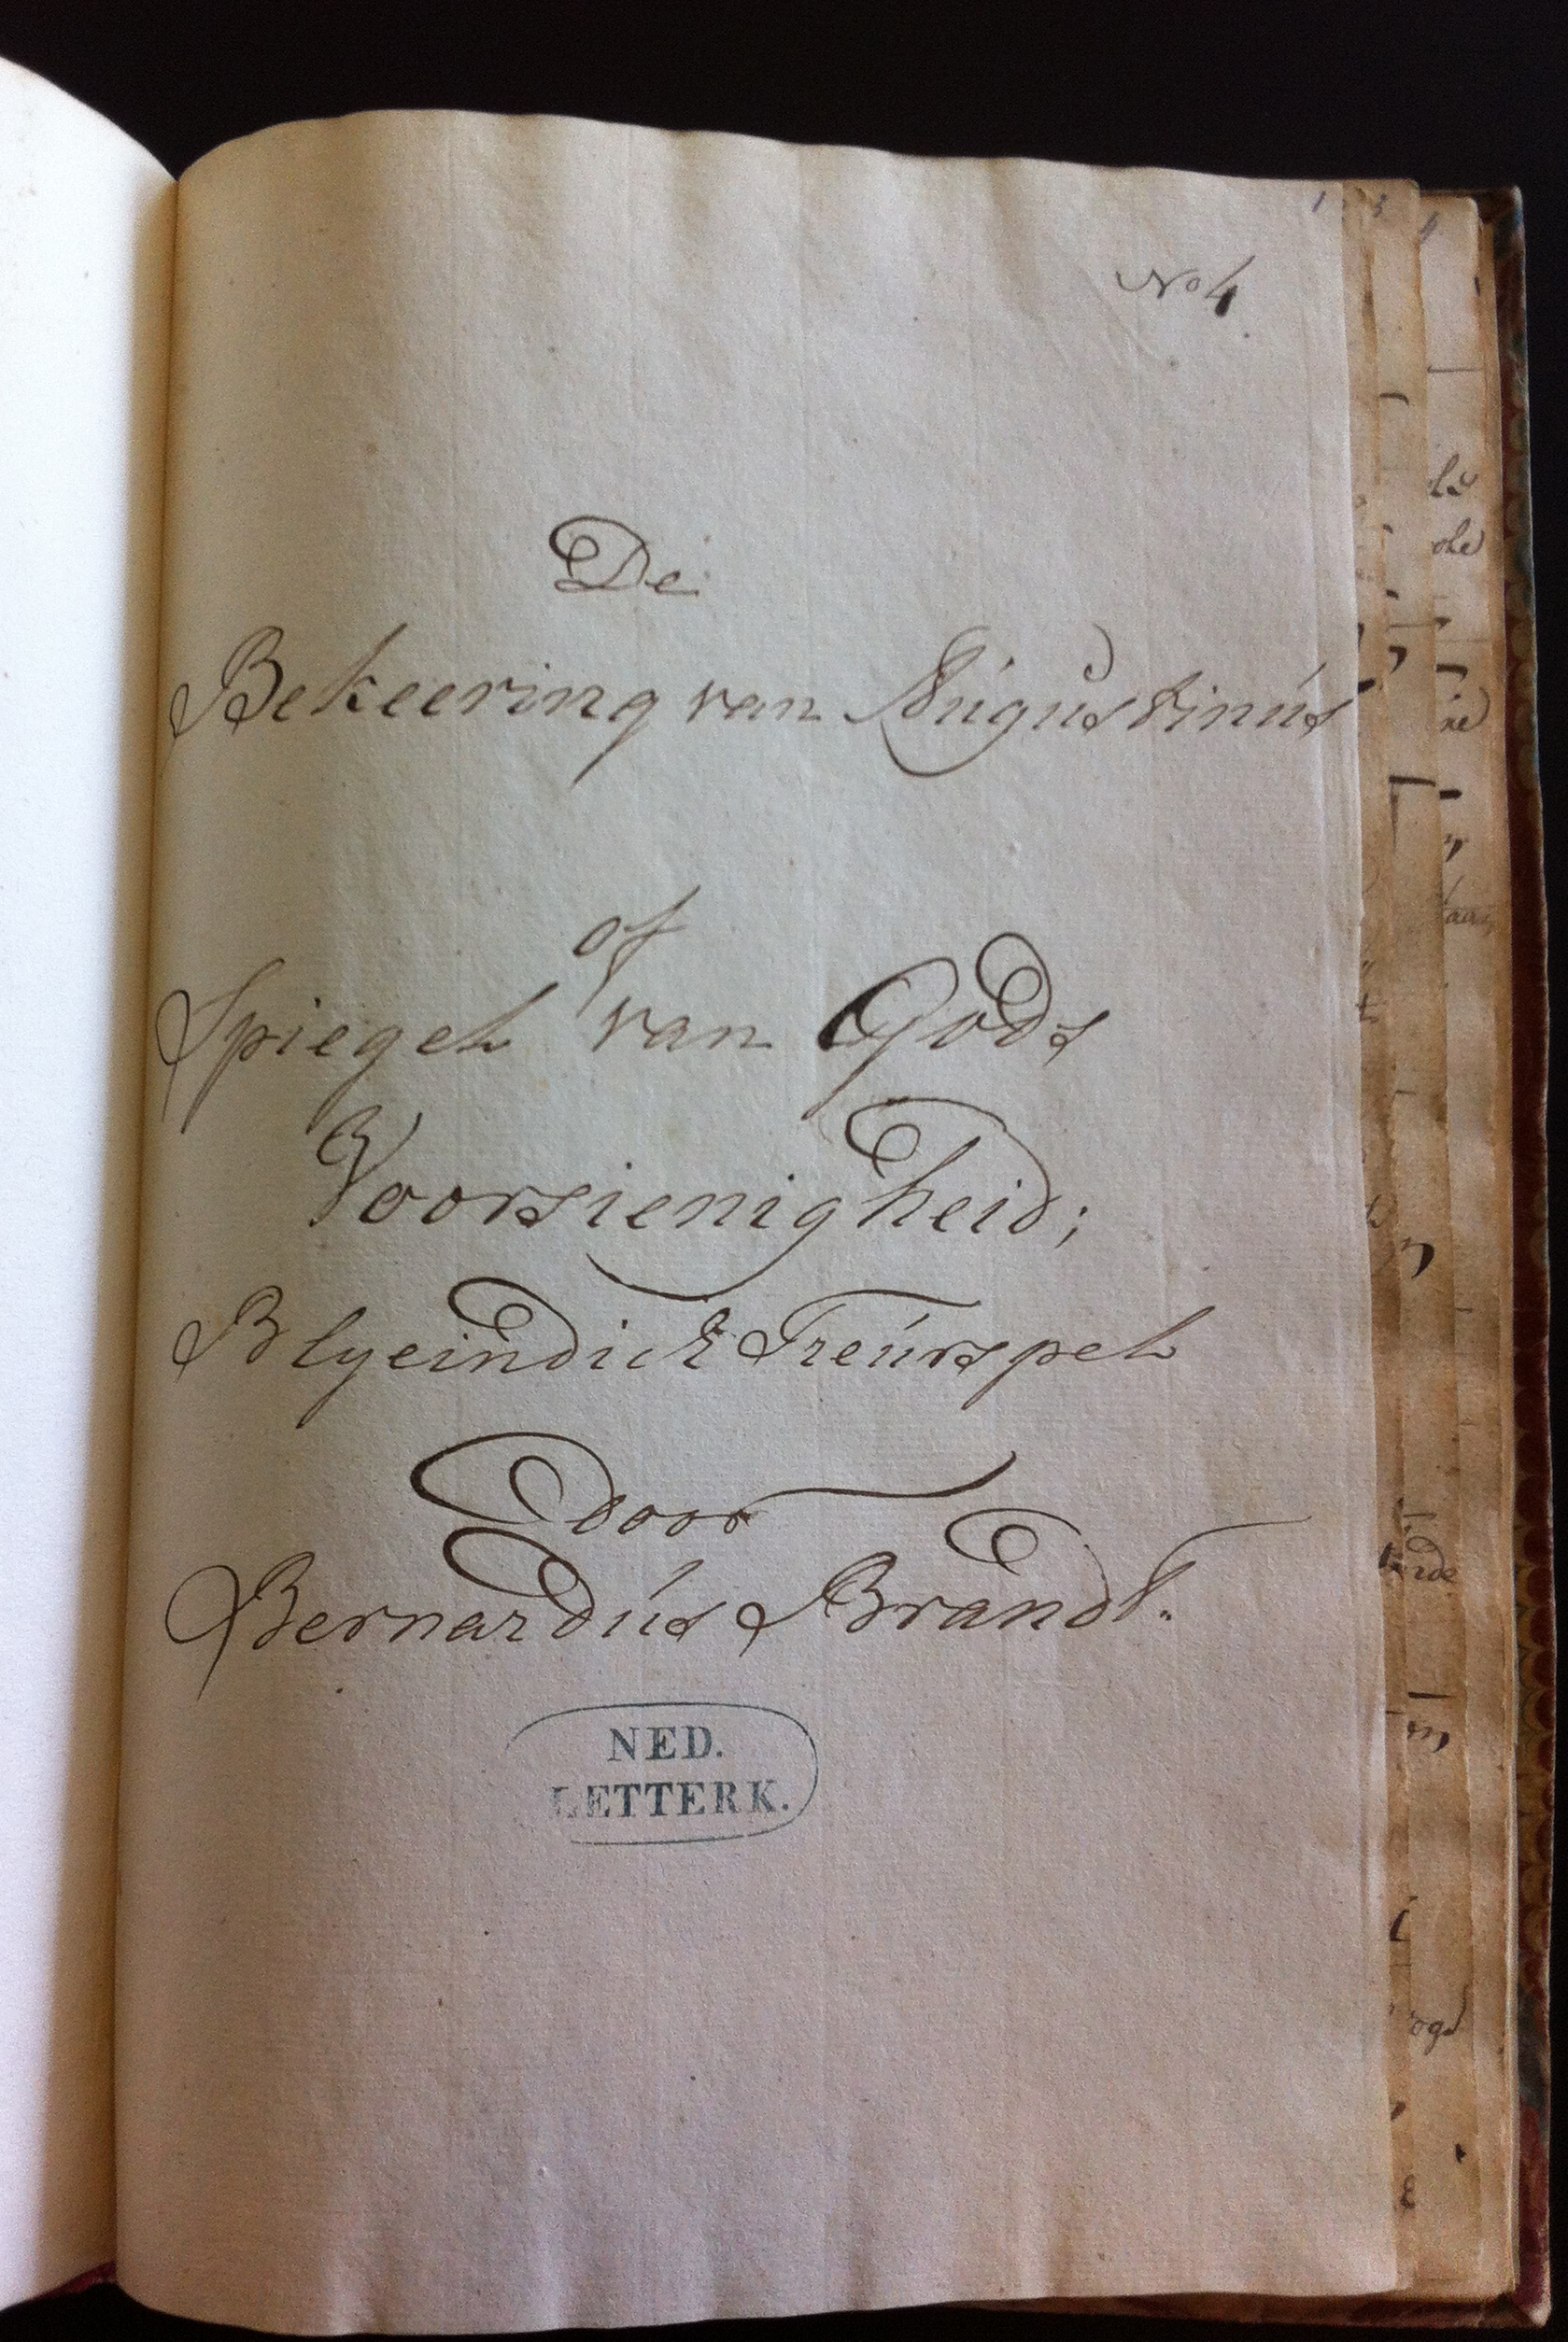 1
No 4
De
Bekeering van Aúgústinús
of
Spiegel van Gods
Voorsienigheid;
Blyeindick Treúrspel
Door
Bernardús Brandt.
NED.
LETTERK.